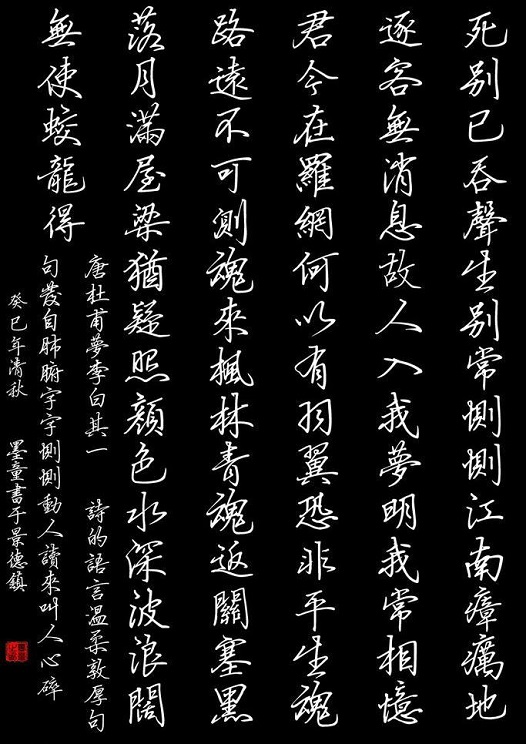 死别已吞聲生别常惻惻江南瘴癘地
逐客無消息故人入我夢明我常相憶
君今在羅網何以有羽翼恐非平生魂
路遠不可測魂來楓林青魂返關塞黑
落月滿屋梁猶疑照顔色水深波浪闊
無使蛟龍得
唐杜甫夢李白其一 詩的語言温柔敦厚句
句發自肺腑字字惻惻動人讀來叫人心碎
癸巳年清秋 墨童書于景德鎮